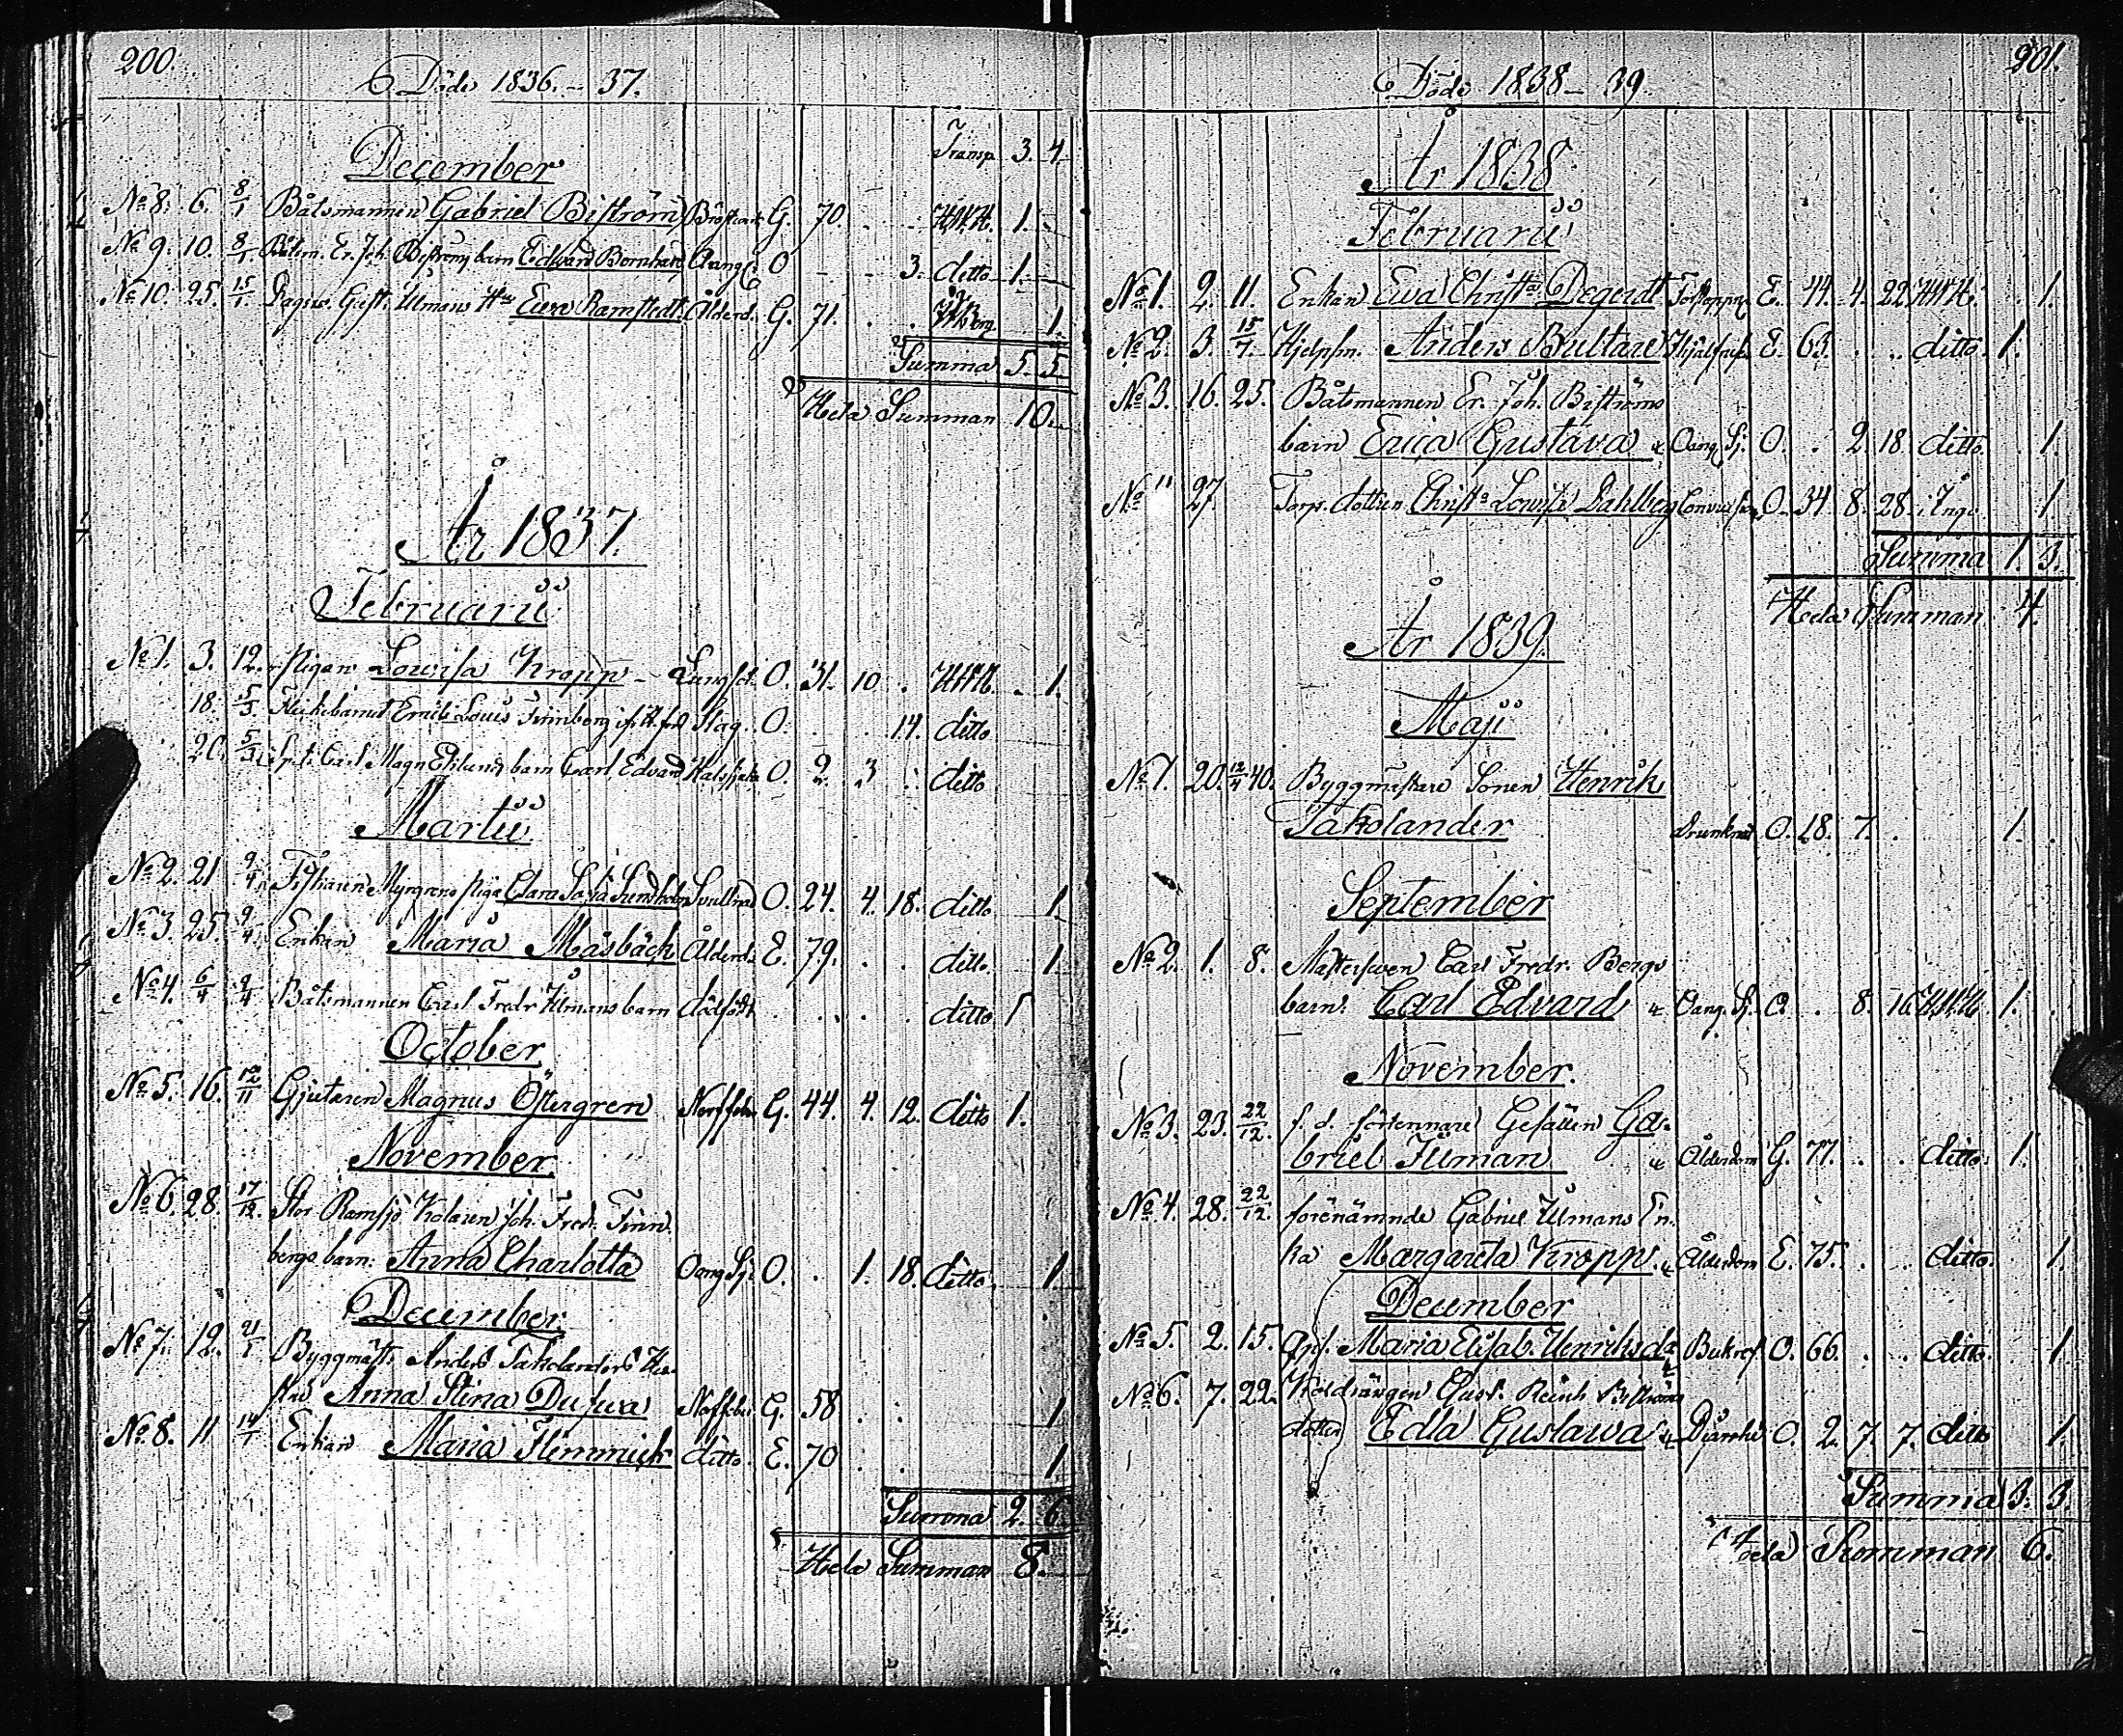 200.
Döde 1836. - 37.
Transp. 3. 4.
December
No 8. 6. 8/1 Båtsmannen Gabriel Biström G. 70. H.W.H. 1.
No 9. 10. 8/1 Båtsm. Er. Joh. Biströms barn Edward Bernhard O 3. ditto 1.
No 10. 25. 15/1 Gust. Ulmans Ha Ewa Ramstedt Ålderd. G. 71. 1.
Summa 5. 5.
Hela Summan 10.
År 1837.
Februarii
No 1. 3. 12. Pigan Lovisa Kropp Lungsot. O. 31. 10. H.W.H. 1.
18. 5/3. Flickebarnet Emili Lovis Finnberg Slag. O. 14. ditto
20. 5/3 Carl Magn Eklund barn Carl Edvard O. 2. 3 ditto
Martii
No 2. 21 9/4 Fiskaren Myrgrens piga Clara Sofia Sundholm O. 24. 4. 18. ditto 1.
No 3. 25. 9/4. Enkan Maria Måsbäck Ålderd. E. 79. ditto. 1.
No 4. 6/4 9/4 Båtsmannen Carl Fredr Ulmans barn dödfödt ditto 1
October
No 5. 16. 12/11 Gjutaren Magnus Östergren Nerffeber G. 44. 4. 12. ditto 1.
November
No 6. 28. 17/12. Stor Ramsjö Kolaren Joh. Fredr. Finn-
bergs barn: Anna Charlotta Oang. Sj. O. 1. 18. ditto. 1
December
No 7. 12. 21/1 Byggmäst. Anders Takolanders Hu-
stru Anna Stina Dufwa Nerffeber G. 58 1
No 8. 11 14/1 Enkan Maria Flemmich ditto. E. 70 1
Summa 2. 6.
Hela Summan 8.
201.
Döde 1838 - 39.
År 1838
Februarii
No 1. 2. 11. Enkan Ewa Christa Degerdt E. 44. 4. 22. H.W.H. 1.
No 2. 3. 15/7. Hjelpsm. Anders Bultare E. 63. ditto. 1.
No 3. 16. 25. Båtsmannen Er. Joh. Biströms
barn Erica Gustava Oang. Sj. O. 2. 18. ditto. 1.
No " 27. Torp. dottren Christa Lowisa Dahlberg O. 34 8. 28. i Ingo 1
Summa 1. 3.
Hela Summan 4.
År 1839.
Maji
No 1. 20. 12/4 40. Byggmästare Sonen Henrik
Takolander drunknat O. 18. 7. 1.
September
No 2. 1. 8. Mästersven Carl Fredr. Bergs
barn: Carl Edvard Oang. Sj. O. 8. 16. H.W.H. 1.
November.
No 3. 23. 22/12. f. d. förtennare Gesällen Ga-
briel Ulman Ålderdom G. 77. ditto. 1.
No 4. 28. 22/12. förenämnde Gabriel Ulmans En-
ka Margareta Kropp. Ålderdom E. 75. ditto. 1.
December
No 5. 2. 15. Maria Elisab. Henriksdr O. 66. ditto. 1.
No 6. 7. 22. Koldrängen Gust. Reinh Biströms
dotter Edla Gustawa Diarrhé O. 2. 7. 7. ditto 1.
Summa 3. 3
Hela Summan 6.